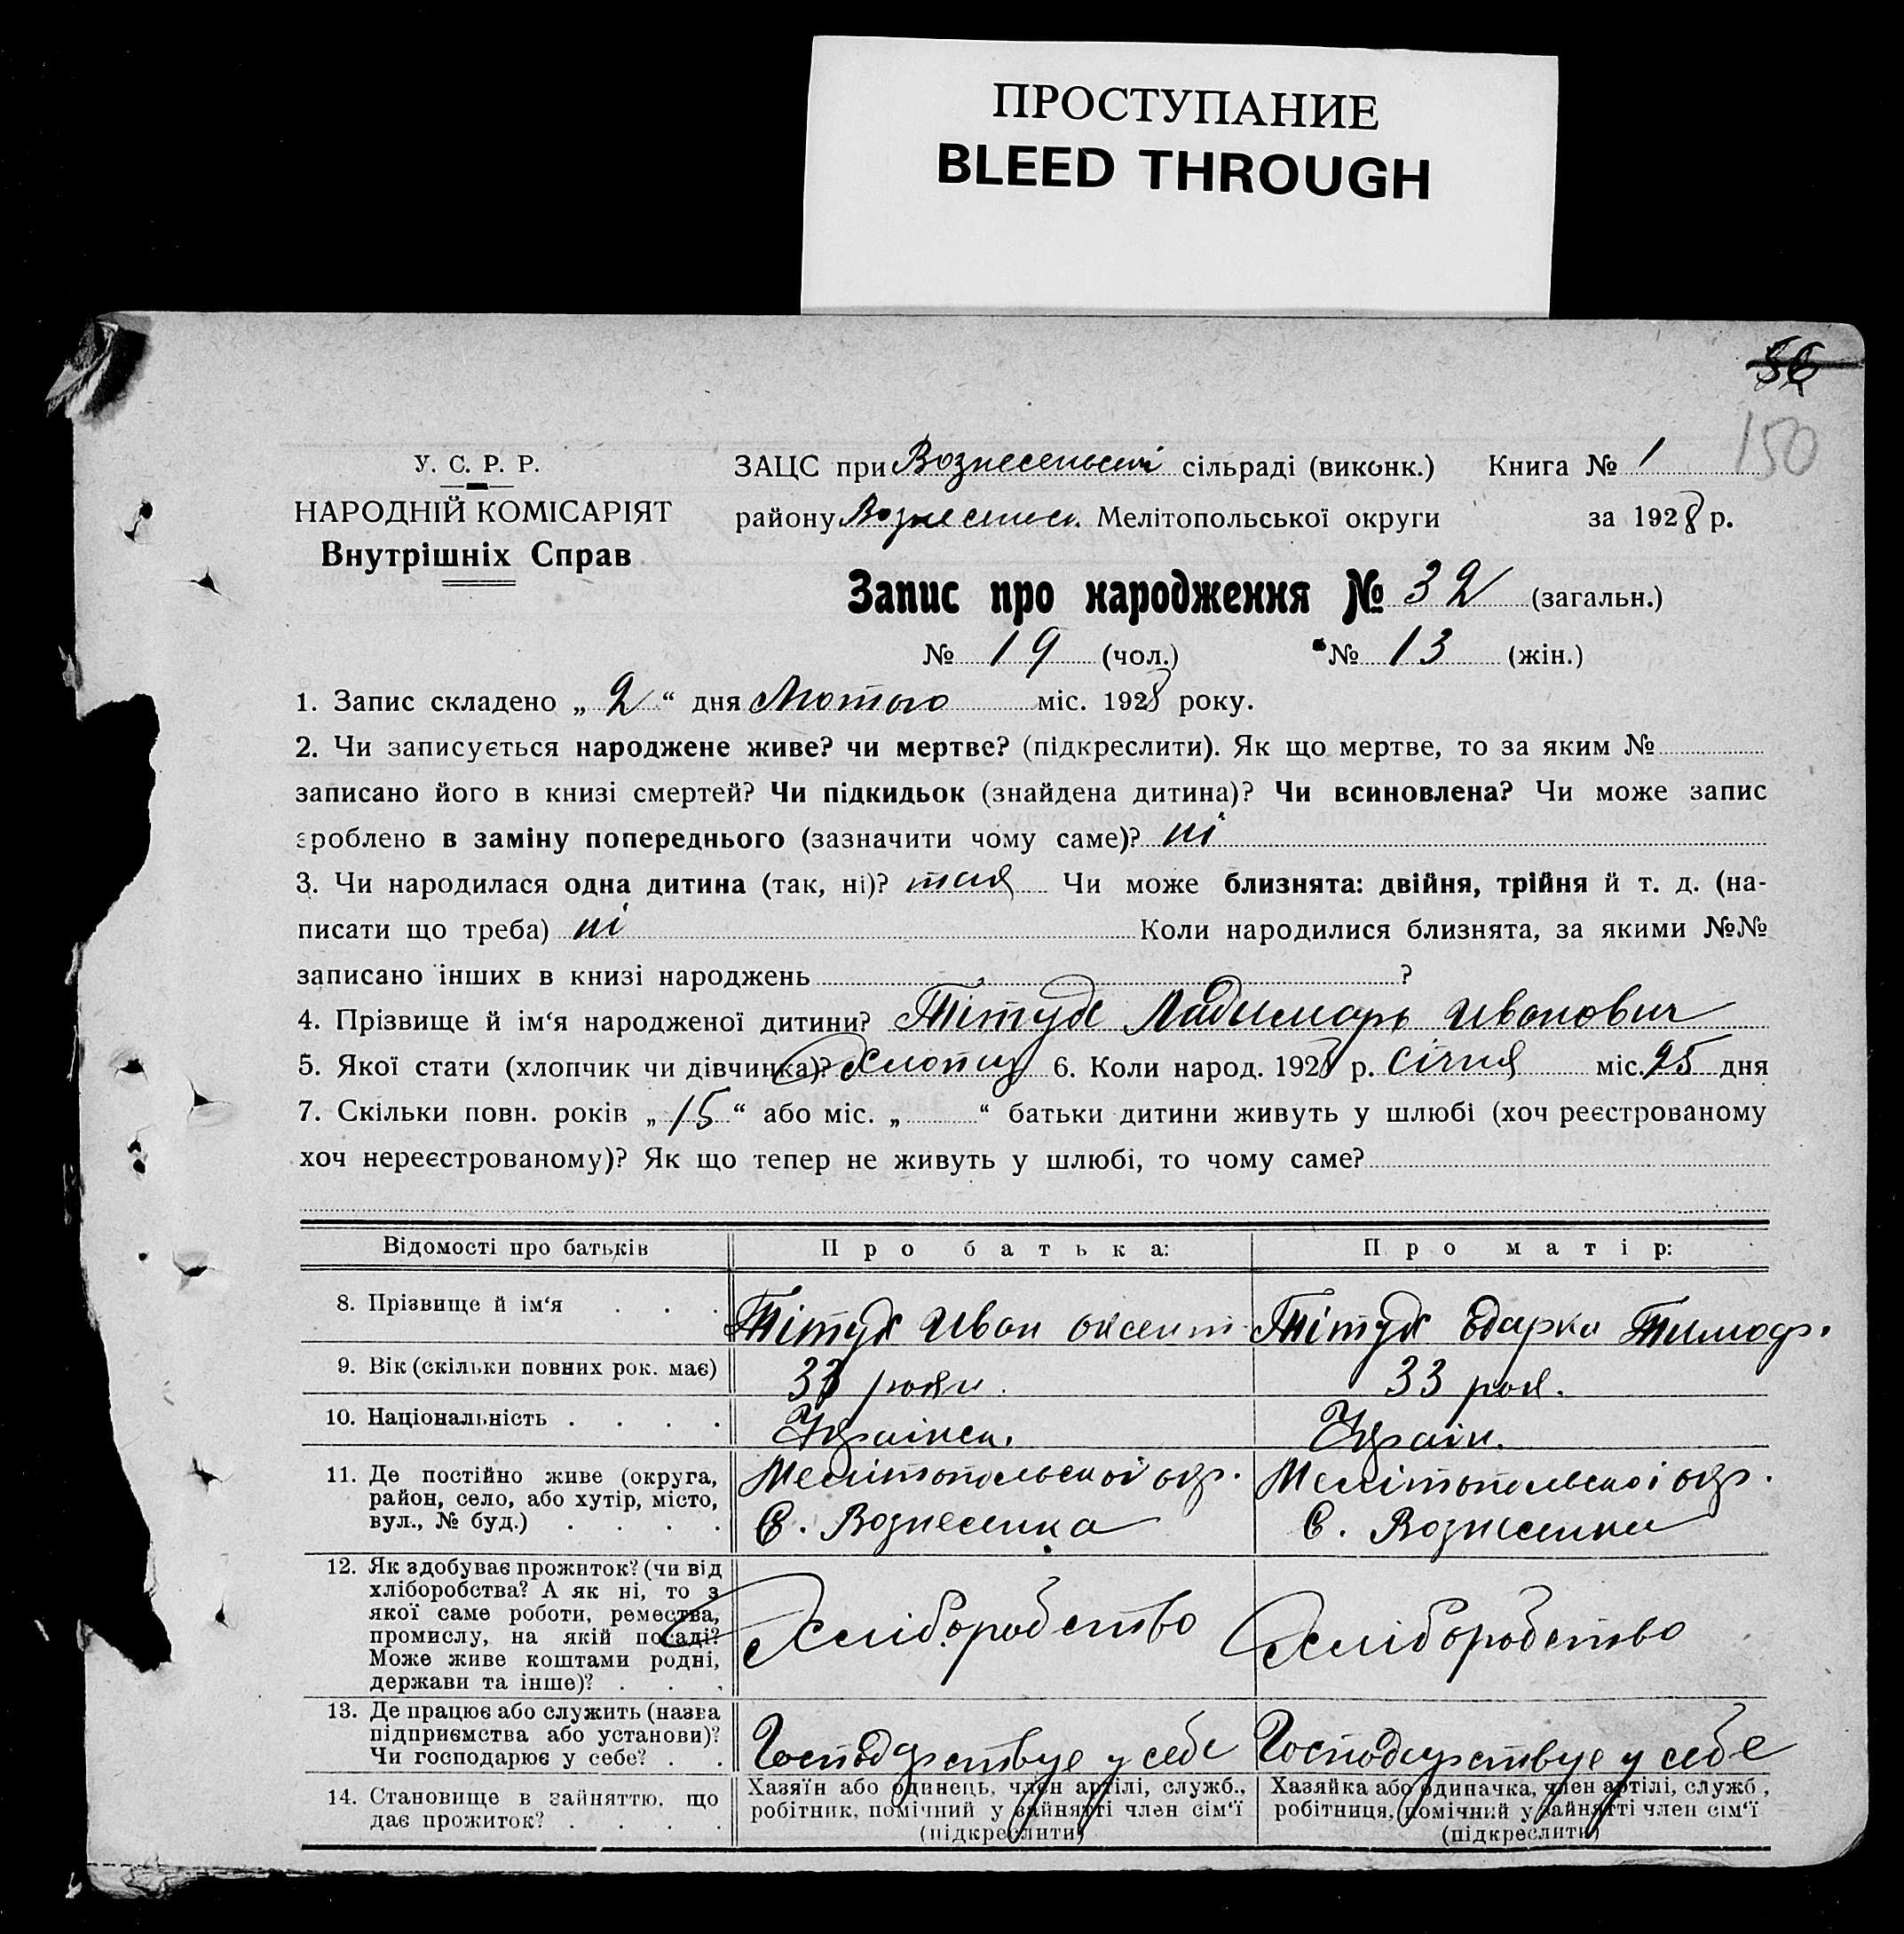 ПРОСТУПАНИЕ
BLEED THROUGH
56
150
У. С. Р. Р.
НАРОДНІЙ КОМІСАРІЯТ
Внутрішніх Справ
ЗАЦС при Вознесенській сільраді (виконк.) Книга № 1
району Вознесенськ. Мелітопольської округи за 1928 р.
Запис про народження № 32 (загальн.)
№ 19 (чол.) № 13 (жін.)
1. Запис складено „ 2 “ дня Лютого міс. 1928 року.
2. Чи записується народжене живе? чи мертве? (підкреслити). Як що мертве, то за яким №
записано його в книзі смертей? Чи підкидьок (знайдена дитина)? Чи всиновлена? Чи може запис
зроблено в заміну попереднього (зазначити чому саме)? ні
3. Чи народилася одна дитина (так, ні)? так Чи може близнята: двійня, трійня й т. д. (на-
писати що треба) ні Коли народилися близнята, за якими №№
записано інших в книзі народжень ?
4. Прізвище й ім‘я народженої дитини? Тітук Ладимарь Иванович
5. Якої стати (хлопчик чи дівчинка)? Хлопиц 6. Коли народ. 1928 р. січня міс. 25 дня
7. Скільки повн. років „ 15 “ або міс. „ “ батьки дитини живуть у шлюбі (хоч реєстрованому
хоч нереєстрованому)? Як що тепер не живуть у шлюбі, то чому саме?
Відомості про батьків Про батька: Про матір:
8. Прізвище й ім‘я . . . Тітук Иван оксент Тітук Одарка Тимоф.
9. Вік (скільки повних рок. має) 33 роки. 33 рок.
10. Національність . . . . Українськ. Україн.
11. Де постійно живе (округа, Мелітопольской окр. Мелітопольскоі окр.
район, село, або хутір, місто,
вул., № буд.) . . . . С. Вознесенка С. Вознесенка
12. Як здобуває прожиток? (чи від
хліборобства? А як ні, то з
якої саме роботи, ремества, Хліборобство Хліборобство
промислу, на якій посаді?
Може живе коштами родні,
держави та інше)? . . .
13. Де працює або служить (назва
підприємства або установи)? Господарствує у себе Господарствує у себе
Чи господарює у себе? . .
14. Становище в зайняттю, що Хазяїн або одинець, член артілі, служб., Хазяйка або одиначка, член артілі, служб.,
дає прожиток? . . . . робітник, помічний у зайнятті член сім‘ї робітниця, помічний у зайнятті член сім‘ї
(підкреслити) (підкреслити)